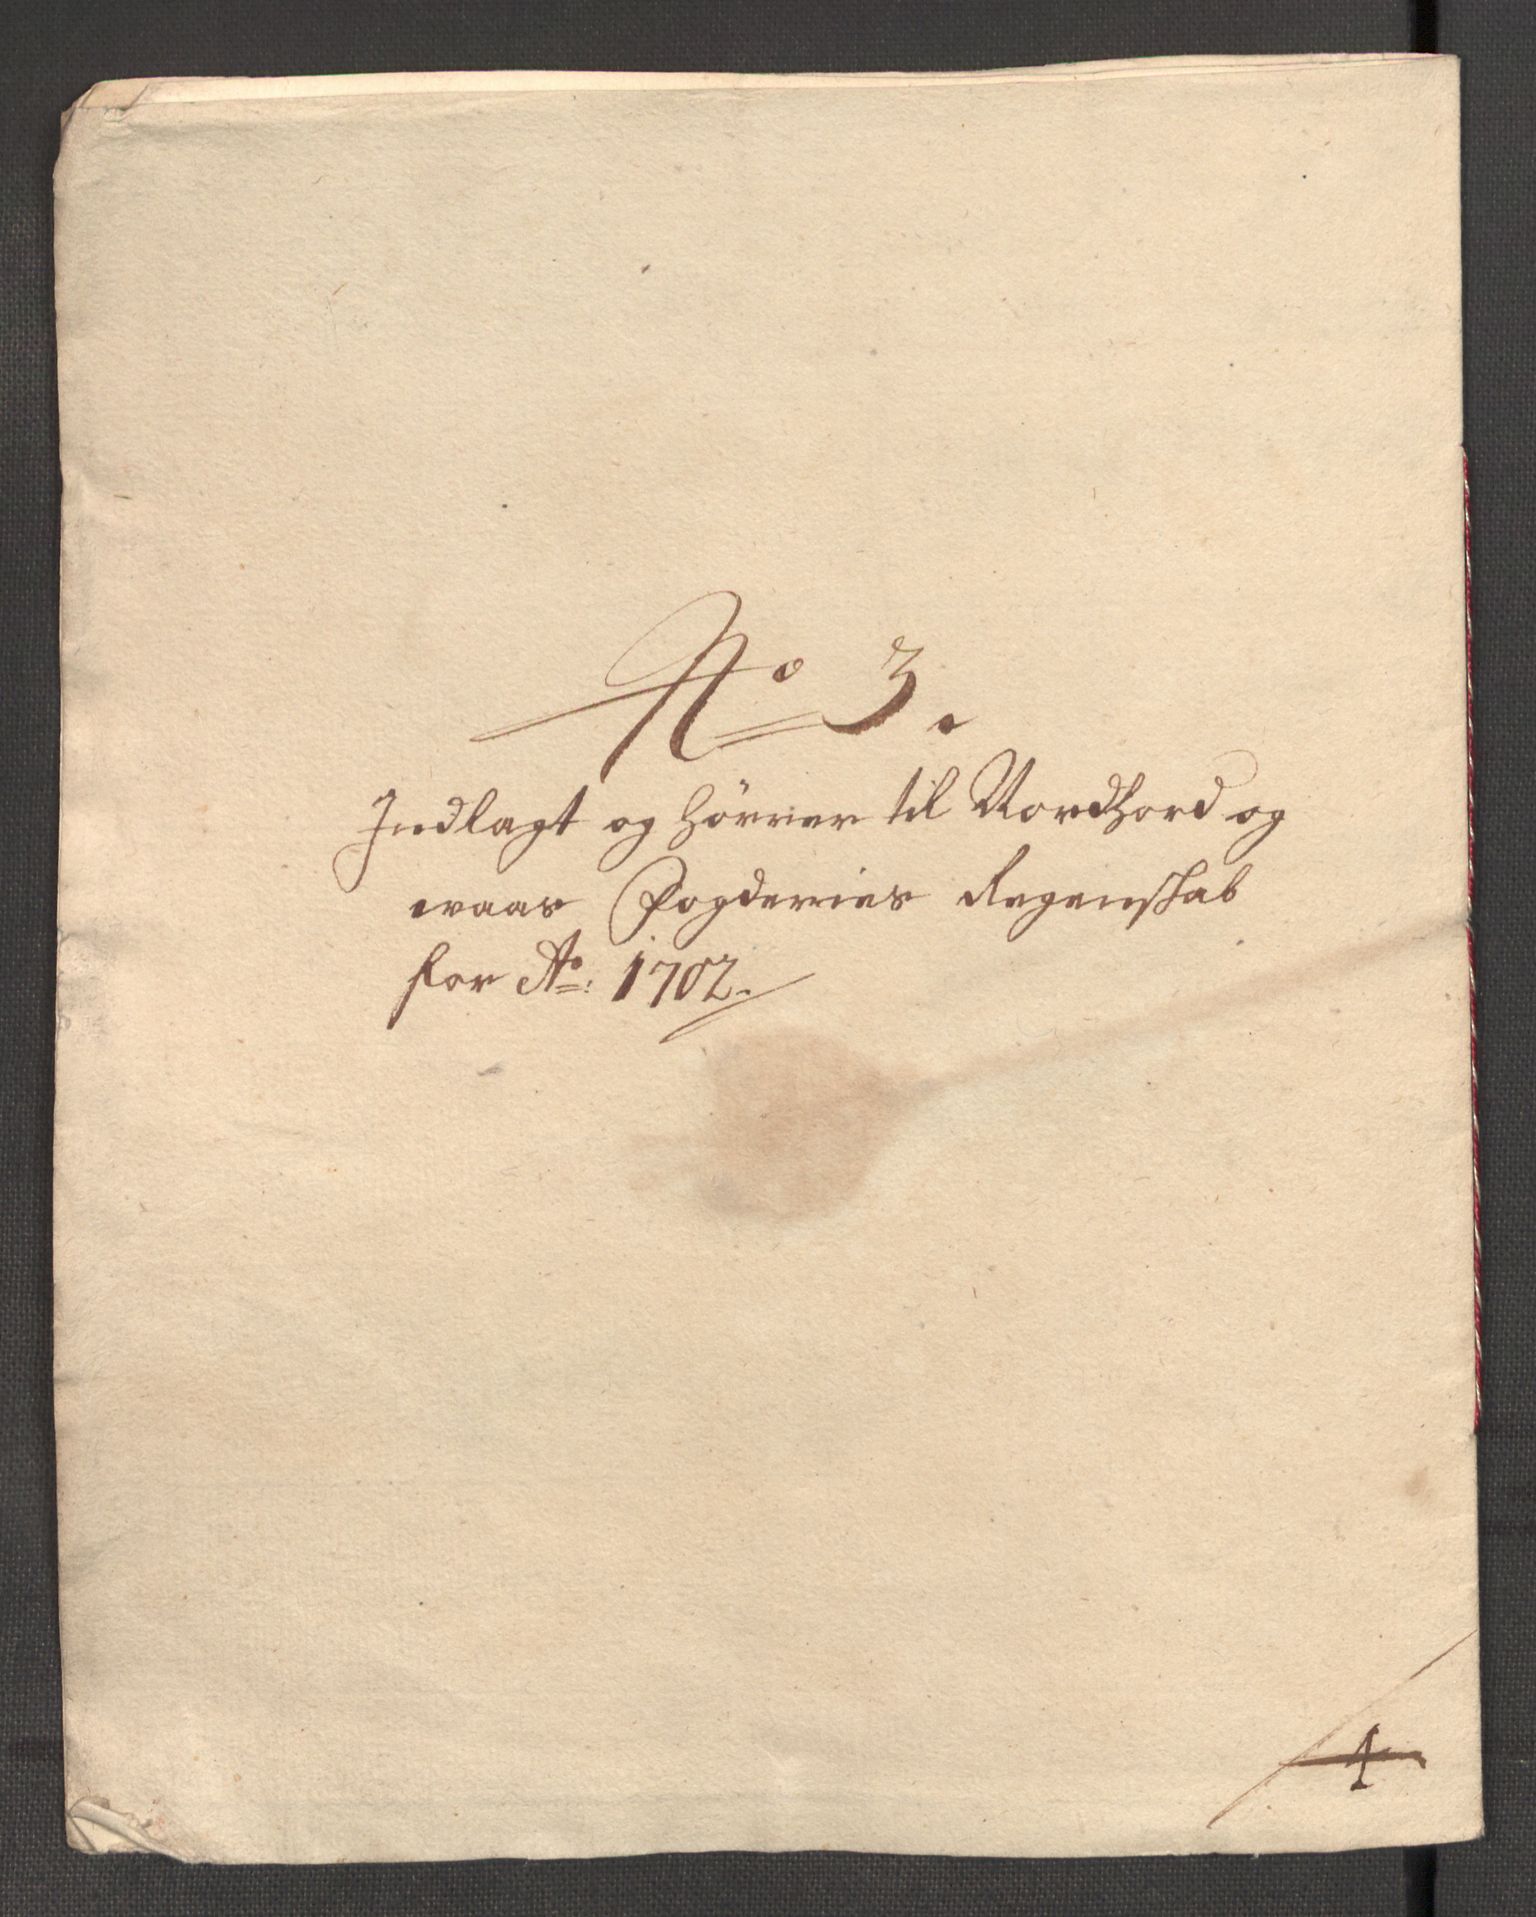 No 3.
Indlagt og hörrer til Nordhord og
waas Fogderies Regenskab
for Ao: 1702.